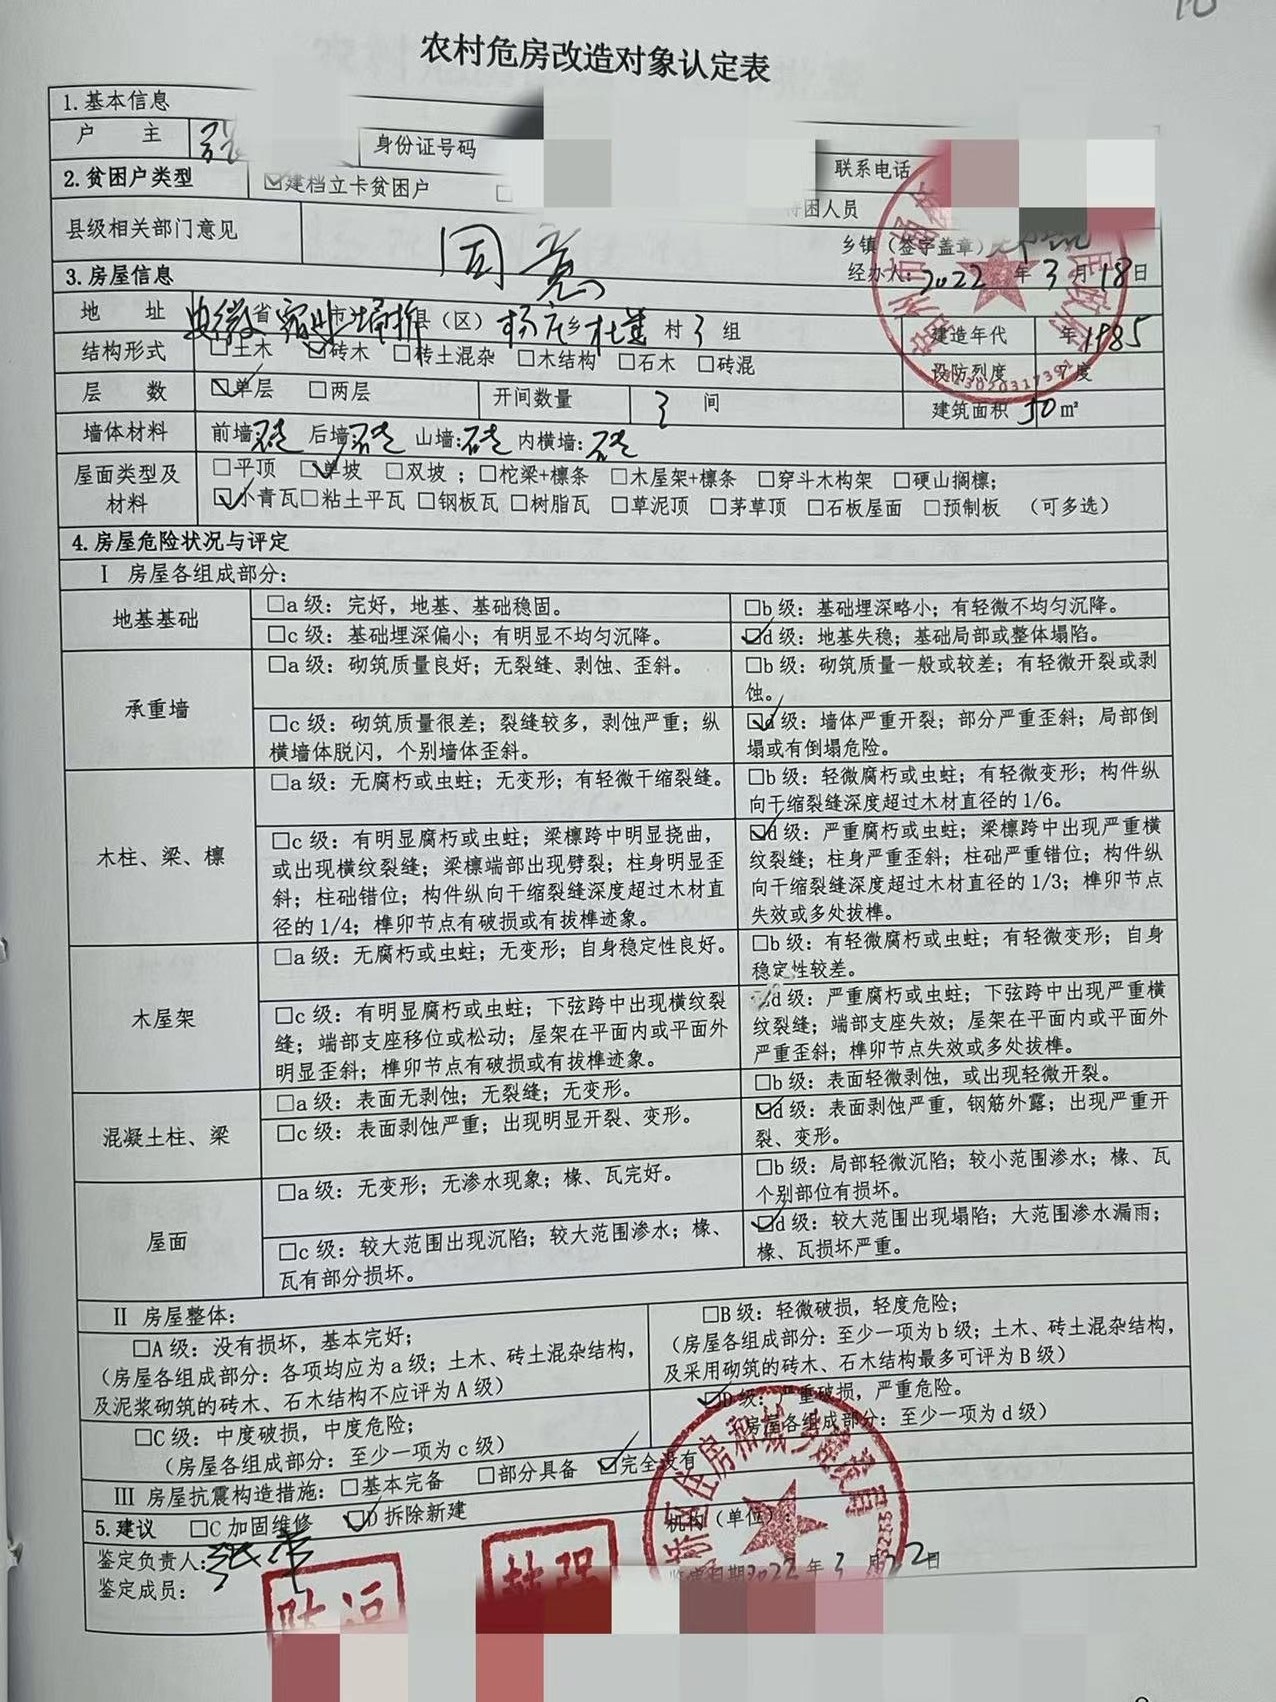 农村危房改造对象认定表
1.基本信息
户 主 张 身份证号码 联系电话
2.贫困户类型 ☑建档立卡贫困户 □ 特困人员
县级相关部门意见 同意 乡镇（签字盖章）
经办人：2022年3月18日
3.房屋信息
地 址 安徽省宿州市埇桥县（区）杨庄乡 村3组 建造年代 年1985
结构形式 □土木 ☑砖木 □砖土混杂 □木结构 □石木 □砖混 设防烈度 7度
层 数 ☑单层 □两层 开间数量 3 间 建筑面积 50㎡
墙体材料 前墙: 后墙: 山墙: 内横墙:
屋面类型及材料 □平顶 ☑单坡 □双坡 ；□柁梁+檩条 □木屋架+檩条 □穿斗木构架 □硬山搁檩；
☑小青瓦□粘土平瓦 □钢板瓦 □树脂瓦 □草泥顶 □茅草顶 □石板屋面 □预制板 （可多选）
4.房屋危险状况与评定
Ⅰ 房屋各组成部分：
地基基础
□a 级：完好，地基、基础稳固。
□b 级：基础埋深略小；有轻微不均匀沉降。
□c 级：基础埋深偏小；有明显不均匀沉降。
☑d 级：地基失稳；基础局部或整体塌陷。
承重墙
□a 级：砌筑质量良好；无裂缝、剥蚀、歪斜。
□b 级：砌筑质量一般或较差；有轻微开裂或剥
蚀。
□c 级：砌筑质量很差；裂缝较多，剥蚀严重；纵
横墙体脱闪，个别墙体歪斜。
☑d 级：墙体严重开裂；部分严重歪斜；局部倒
塌或有倒塌危险。
木柱、梁、檩
□a 级：无腐朽或虫蛀；无变形；有轻微干缩裂缝。
□b 级：轻微腐朽或虫蛀；有轻微变形；构件纵
向干缩裂缝深度超过木材直径的 1/6。
□c 级：有明显腐朽或虫蛀；梁檩跨中明显挠曲，
或出现横纹裂缝；梁檩端部出现劈裂；柱身明显歪
斜；柱础错位；构件纵向干缩裂缝深度超过木材直
径的 1/4；榫卯节点有破损或有拔榫迹象。
☑d 级：严重腐朽或虫蛀；梁檩跨中出现严重横
纹裂缝；柱身严重歪斜；柱础严重错位；构件纵
向干缩裂缝深度超过木材直径的 1/3；榫卯节点
失效或多处拔榫。
木屋架
□a 级：无腐朽或虫蛀；无变形；自身稳定性良好。
□b 级：有轻微腐朽或虫蛀；有轻微变形；自身
稳定性较差。
□c 级：有明显腐朽或虫蛀；下弦跨中出现横纹裂
缝；端部支座移位或松动；屋架在平面内或平面外
明显歪斜；榫卯节点有破损或有拔榫迹象。
☑d 级：严重腐朽或虫蛀；下弦跨中出现严重横
纹裂缝；端部支座失效；屋架在平面内或平面外
严重歪斜；榫卯节点失效或多处拔榫。
混凝土柱、梁
□a 级：表面无剥蚀；无裂缝；无变形。
□b 级：表面轻微剥蚀，或出现轻微开裂。
□c 级：表面剥蚀严重；出现明显开裂、变形。
☑d 级：表面剥蚀严重，钢筋外露；出现严重开
裂、变形。
屋面
□a 级：无变形；无渗水现象；椽、瓦完好。
□b 级：局部轻微沉陷；较小范围渗水；椽、瓦
个别部位有损坏。
□c 级：较大范围出现沉陷；较大范围渗水；椽、
瓦有部分损坏。
☑d 级：较大范围出现塌陷；大范围渗水漏雨；
椽、瓦损坏严重。
Ⅱ 房屋整体：
□A 级：没有损坏，基本完好；
（房屋各组成部分：各项均应为 a 级；土木、砖土混杂结构，
及泥浆砌筑的砖木、石木结构不应评为 A 级）
□B 级：轻微破损，轻度危险；
（房屋各组成部分：至少一项为 b 级；土木、砖土混杂结构，
及采用砌筑的砖木、石木结构最多可评为 B 级）
□C 级：中度破损，中度危险；
（房屋各组成部分：至少一项为 c 级）
☑D 级：严重破损，严重危险。
房屋各组成部分：至少一项为 d 级）
Ⅲ 房屋抗震构造措施：□基本完备 □部分具备 ☑完全没有
5.建议 □C 加固维修 ☑D 拆除新建
鉴定负责人： 机构（单位）：
鉴定成员： 鉴定日期2022年3月 日